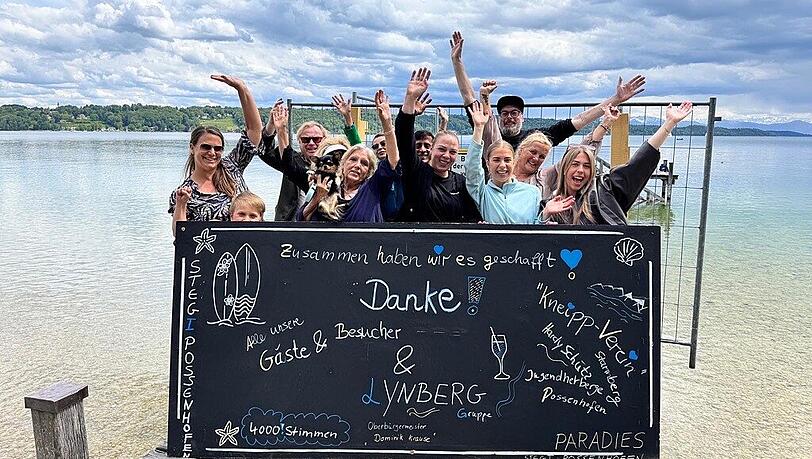 Zusammen haben wir es geschafft!
Danke!
Alle unsre
Gäste & Besucher
&
LYNBERG
Gruppe
Oberbürgermeister
"Dominik Krause"
4000! Stimmen
"Kneipp-Verein"
Starnberg
Hardy Schütz
Jugendherberge
Possenhofen
PARADIES
STEGI POSSENHOFEN